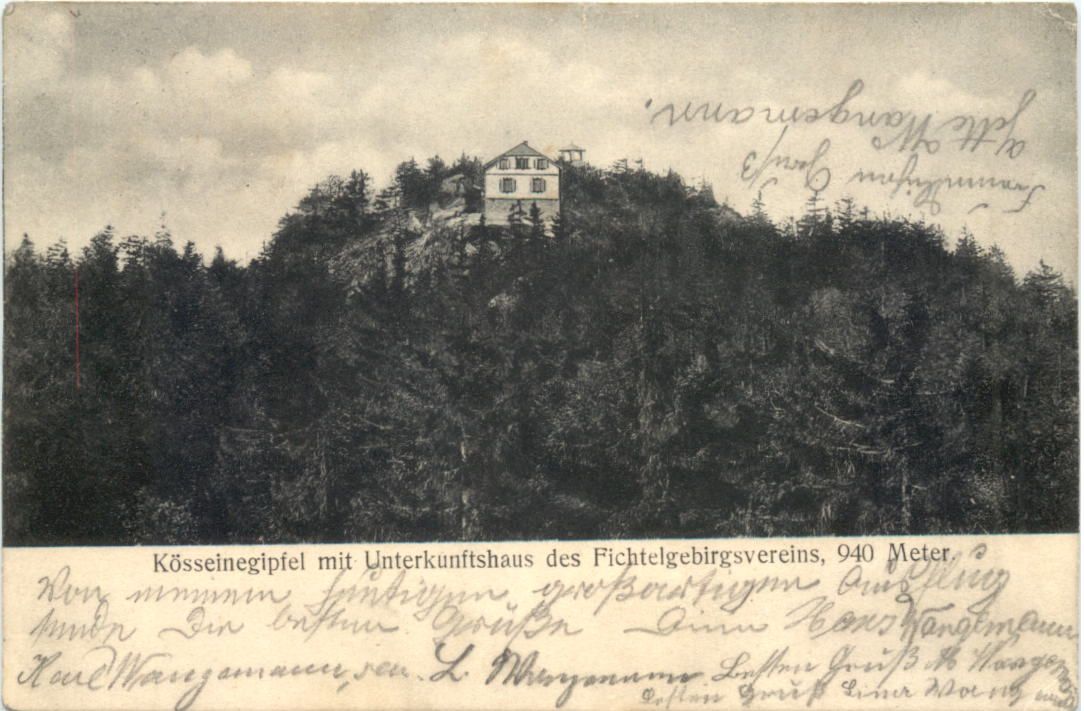 Kösseinegipfel mit Unterkunftshaus des Fichtelgebirgsvereins, 940 Meter.
Von meinem heutigen großartigen Ausflug
sende Dir besten Grüße Hans Wangemann
Karl Wangemann, sen. L. Wangemann Besten Gruß M. Wangemann
besten Gruß Lina
Gruß
Wangemann.